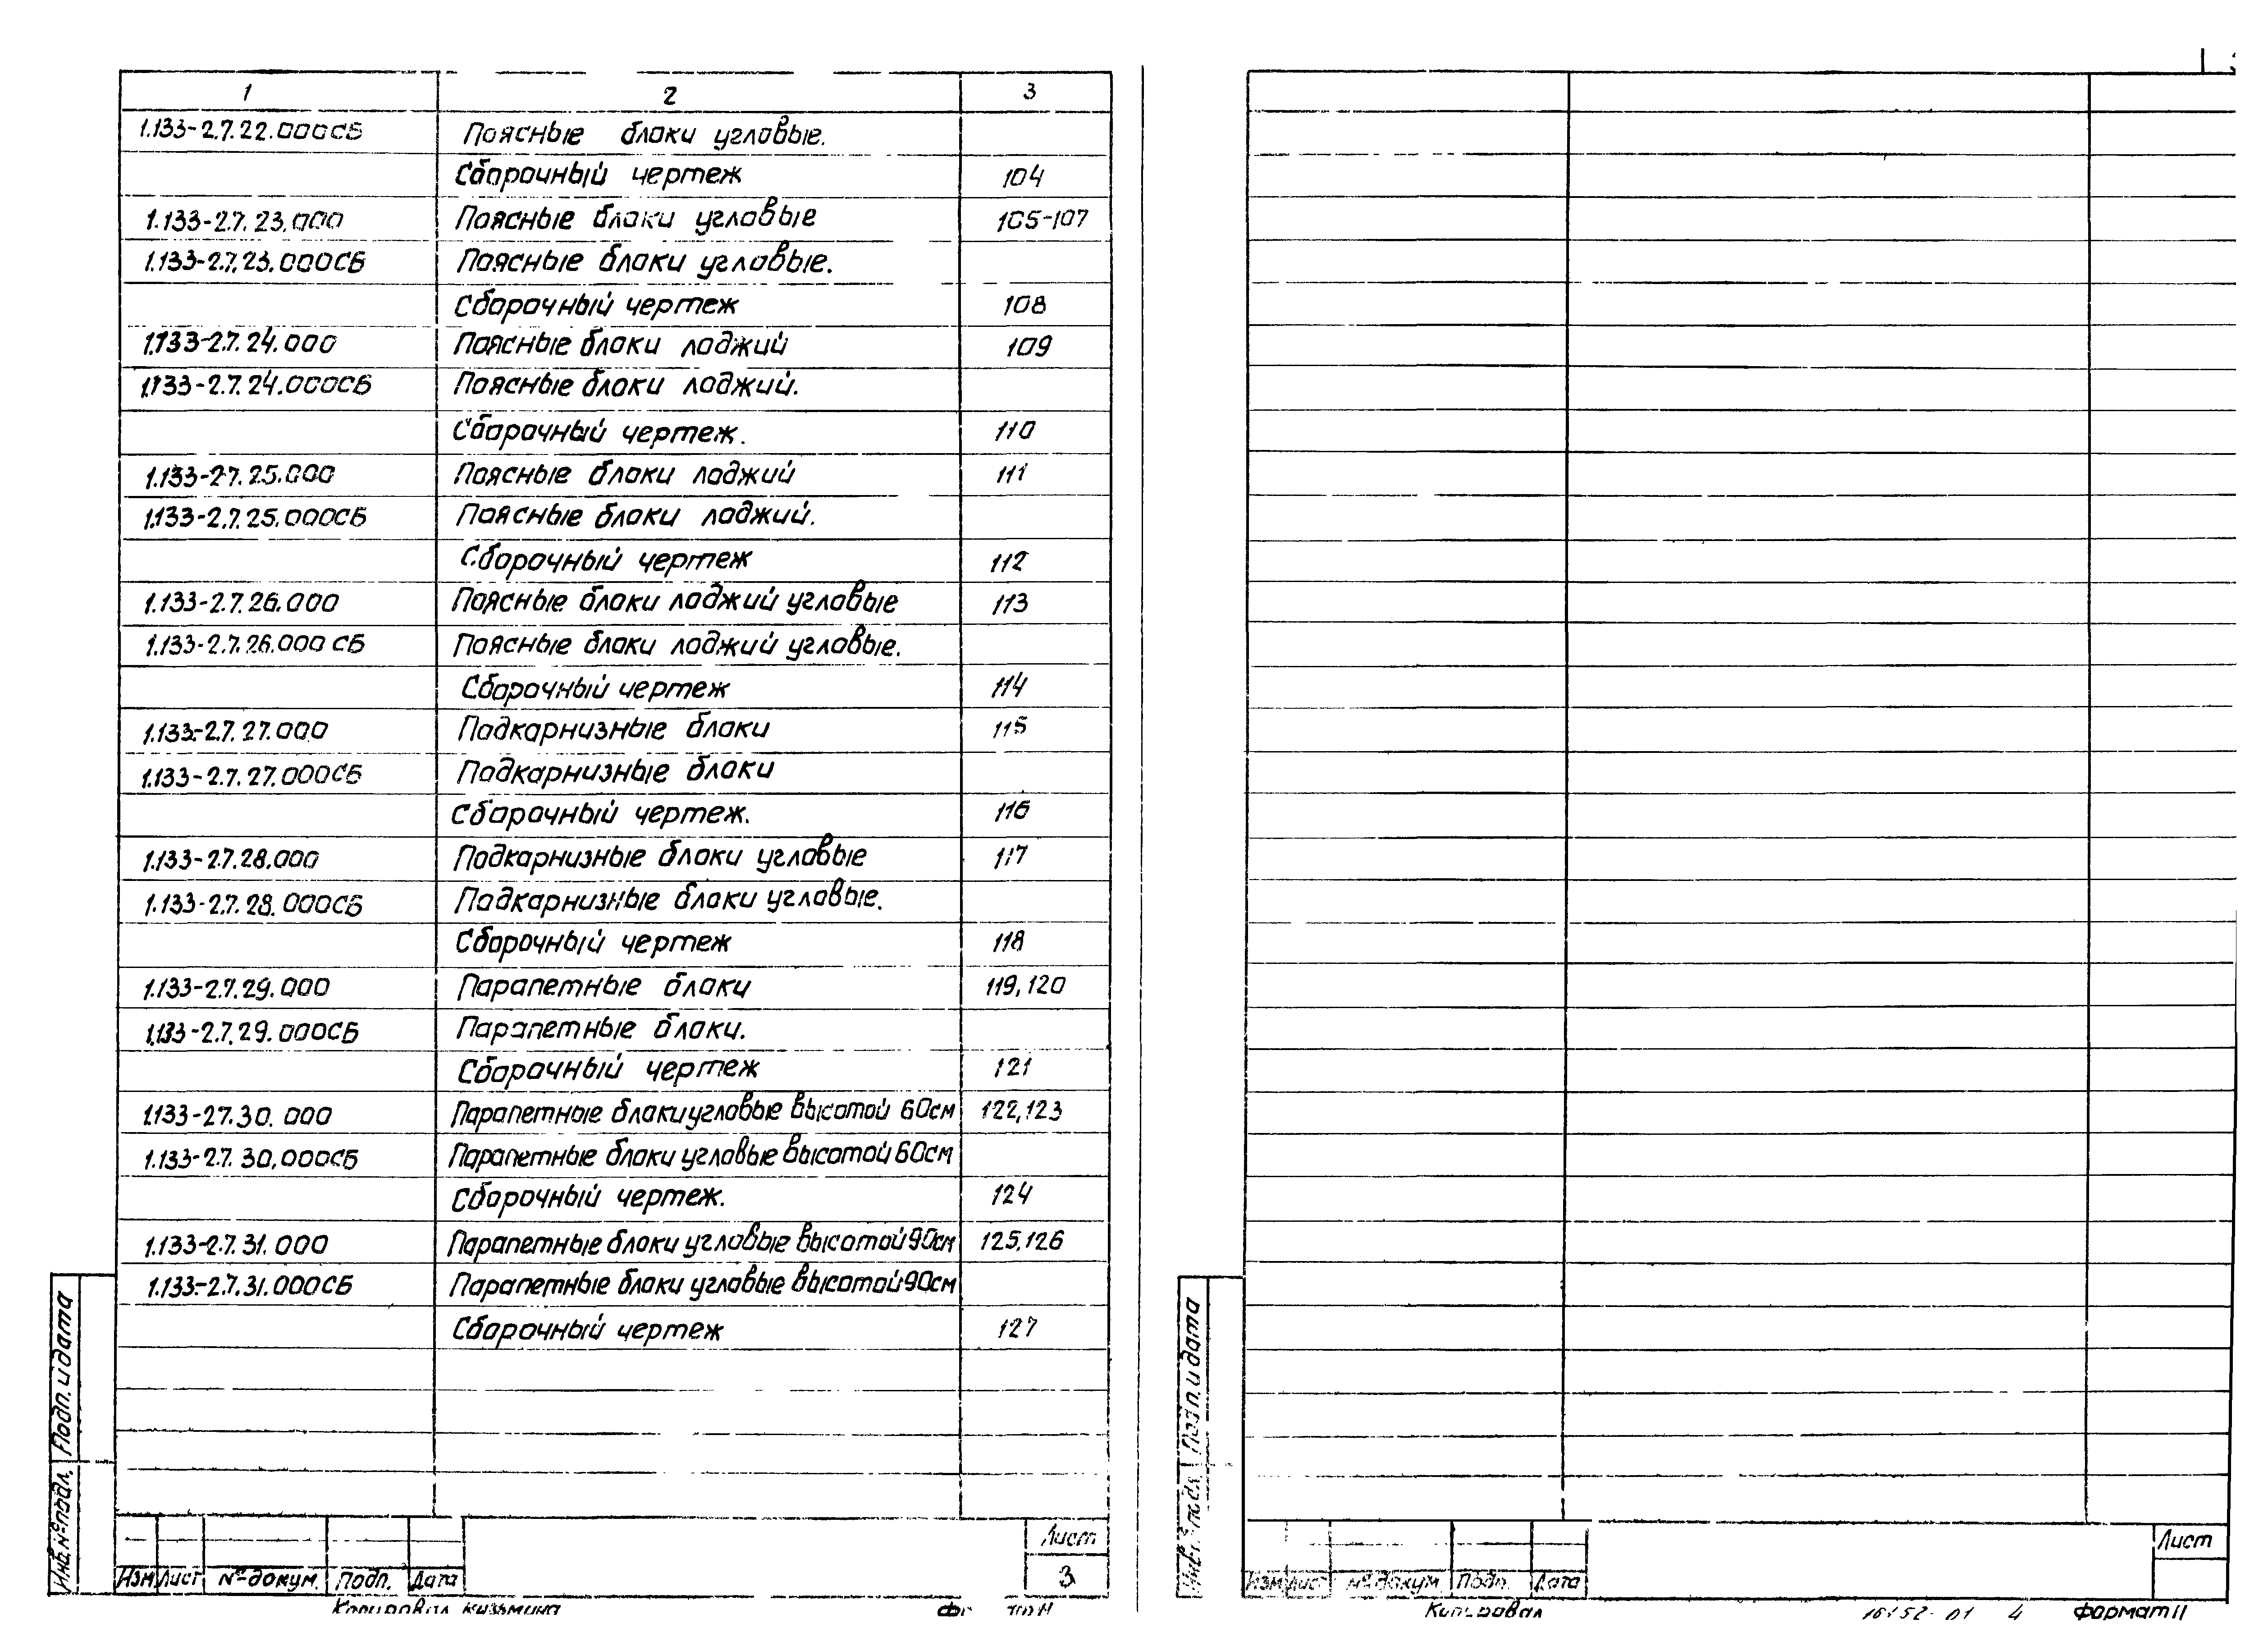 1 2 3
1.133-2.7.22.000СБ Поясные блоки угловые.
Сборочный чертеж 104
1.133-2.7.23.000 Поясные блоки угловые 105-107
1.133-2.7.23.000СБ Поясные блоки угловые.
Сборочный чертеж 108
1.133-2.7.24.000 Поясные блоки лоджий 109
1.133-2.7.24.000СБ Поясные блоки лоджий.
Сборочный чертеж. 110
1.133-2.7.25.000 Поясные блоки лоджий 111
1.133-2.7.25.000СБ Поясные блоки лоджий.
Сборочный чертеж 112
1.133-2.7.26.000 Поясные блоки лоджий угловые 113
1.133-2.7.26.000 СБ Поясные блоки лоджий угловые.
Сборочный чертеж 114
1.133-2.7.27.000 Подкарнизные блоки 115
1.133-2.7.27.000СБ Подкарнизные блоки
Сборочный чертеж. 116
1.133-2.7.28.000 Подкарнизные блоки угловые 117
1.133-2.7.28.000СБ Подкарнизные блоки угловые.
Сборочный чертеж 118
1.133-2.7.29.000 Парапетные блоки 119,120
1.133-2.7.29.000СБ Парапетные блоки.
Сборочный чертеж 121
1.133-2.7.30.000 Парапетные блоки угловые высотой 60см 122,123
1.133-2.7.30.000СБ Парапетные блоки угловые высотой 60см
Сборочный чертеж. 124
1.133-2.7.31.000 Парапетные блоки угловые высотой 90см 125,126
1.133-2.7.31.000СБ Парапетные блоки угловые высотой 90см
Сборочный чертеж 127
Подп. и дата
Инв.№ подл.
Лист
3
Изм Лист № докум. Подп. Дата
Копировал Кузьмина
Подп. и дата
Инв.№ подл.
Лист
Изм Лист № докум. Подп. Дата
Копировал 01 4 Формат 11